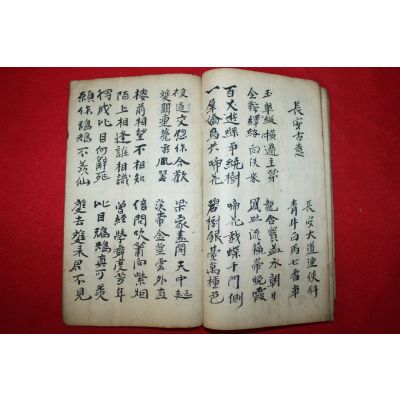 長安古意
長安大道連俠斜
青牛白馬七香車
玉輦縱橫過主第
金鞭絡繹向侯家
龍含寶盖承朝日
鳳吐流蘇帶晚霞
百丈遊絲爭繞樹
一群嬌鳥共啼花
啼花戲蝶千門側
碧樹銀臺萬種色
複道交窓作合歡
雙闕連甍垂鳳翼
梁家畫閣天中起
漢帝金莖雲外直
樓前相望不相知
陌上相逢誰相識
借問吹簫向紫烟
曾經學舞度芳年
得成比目何辭死
願作鴛鴦不羨仙
比目鴛鴦真可羨
雙去雙來君不見